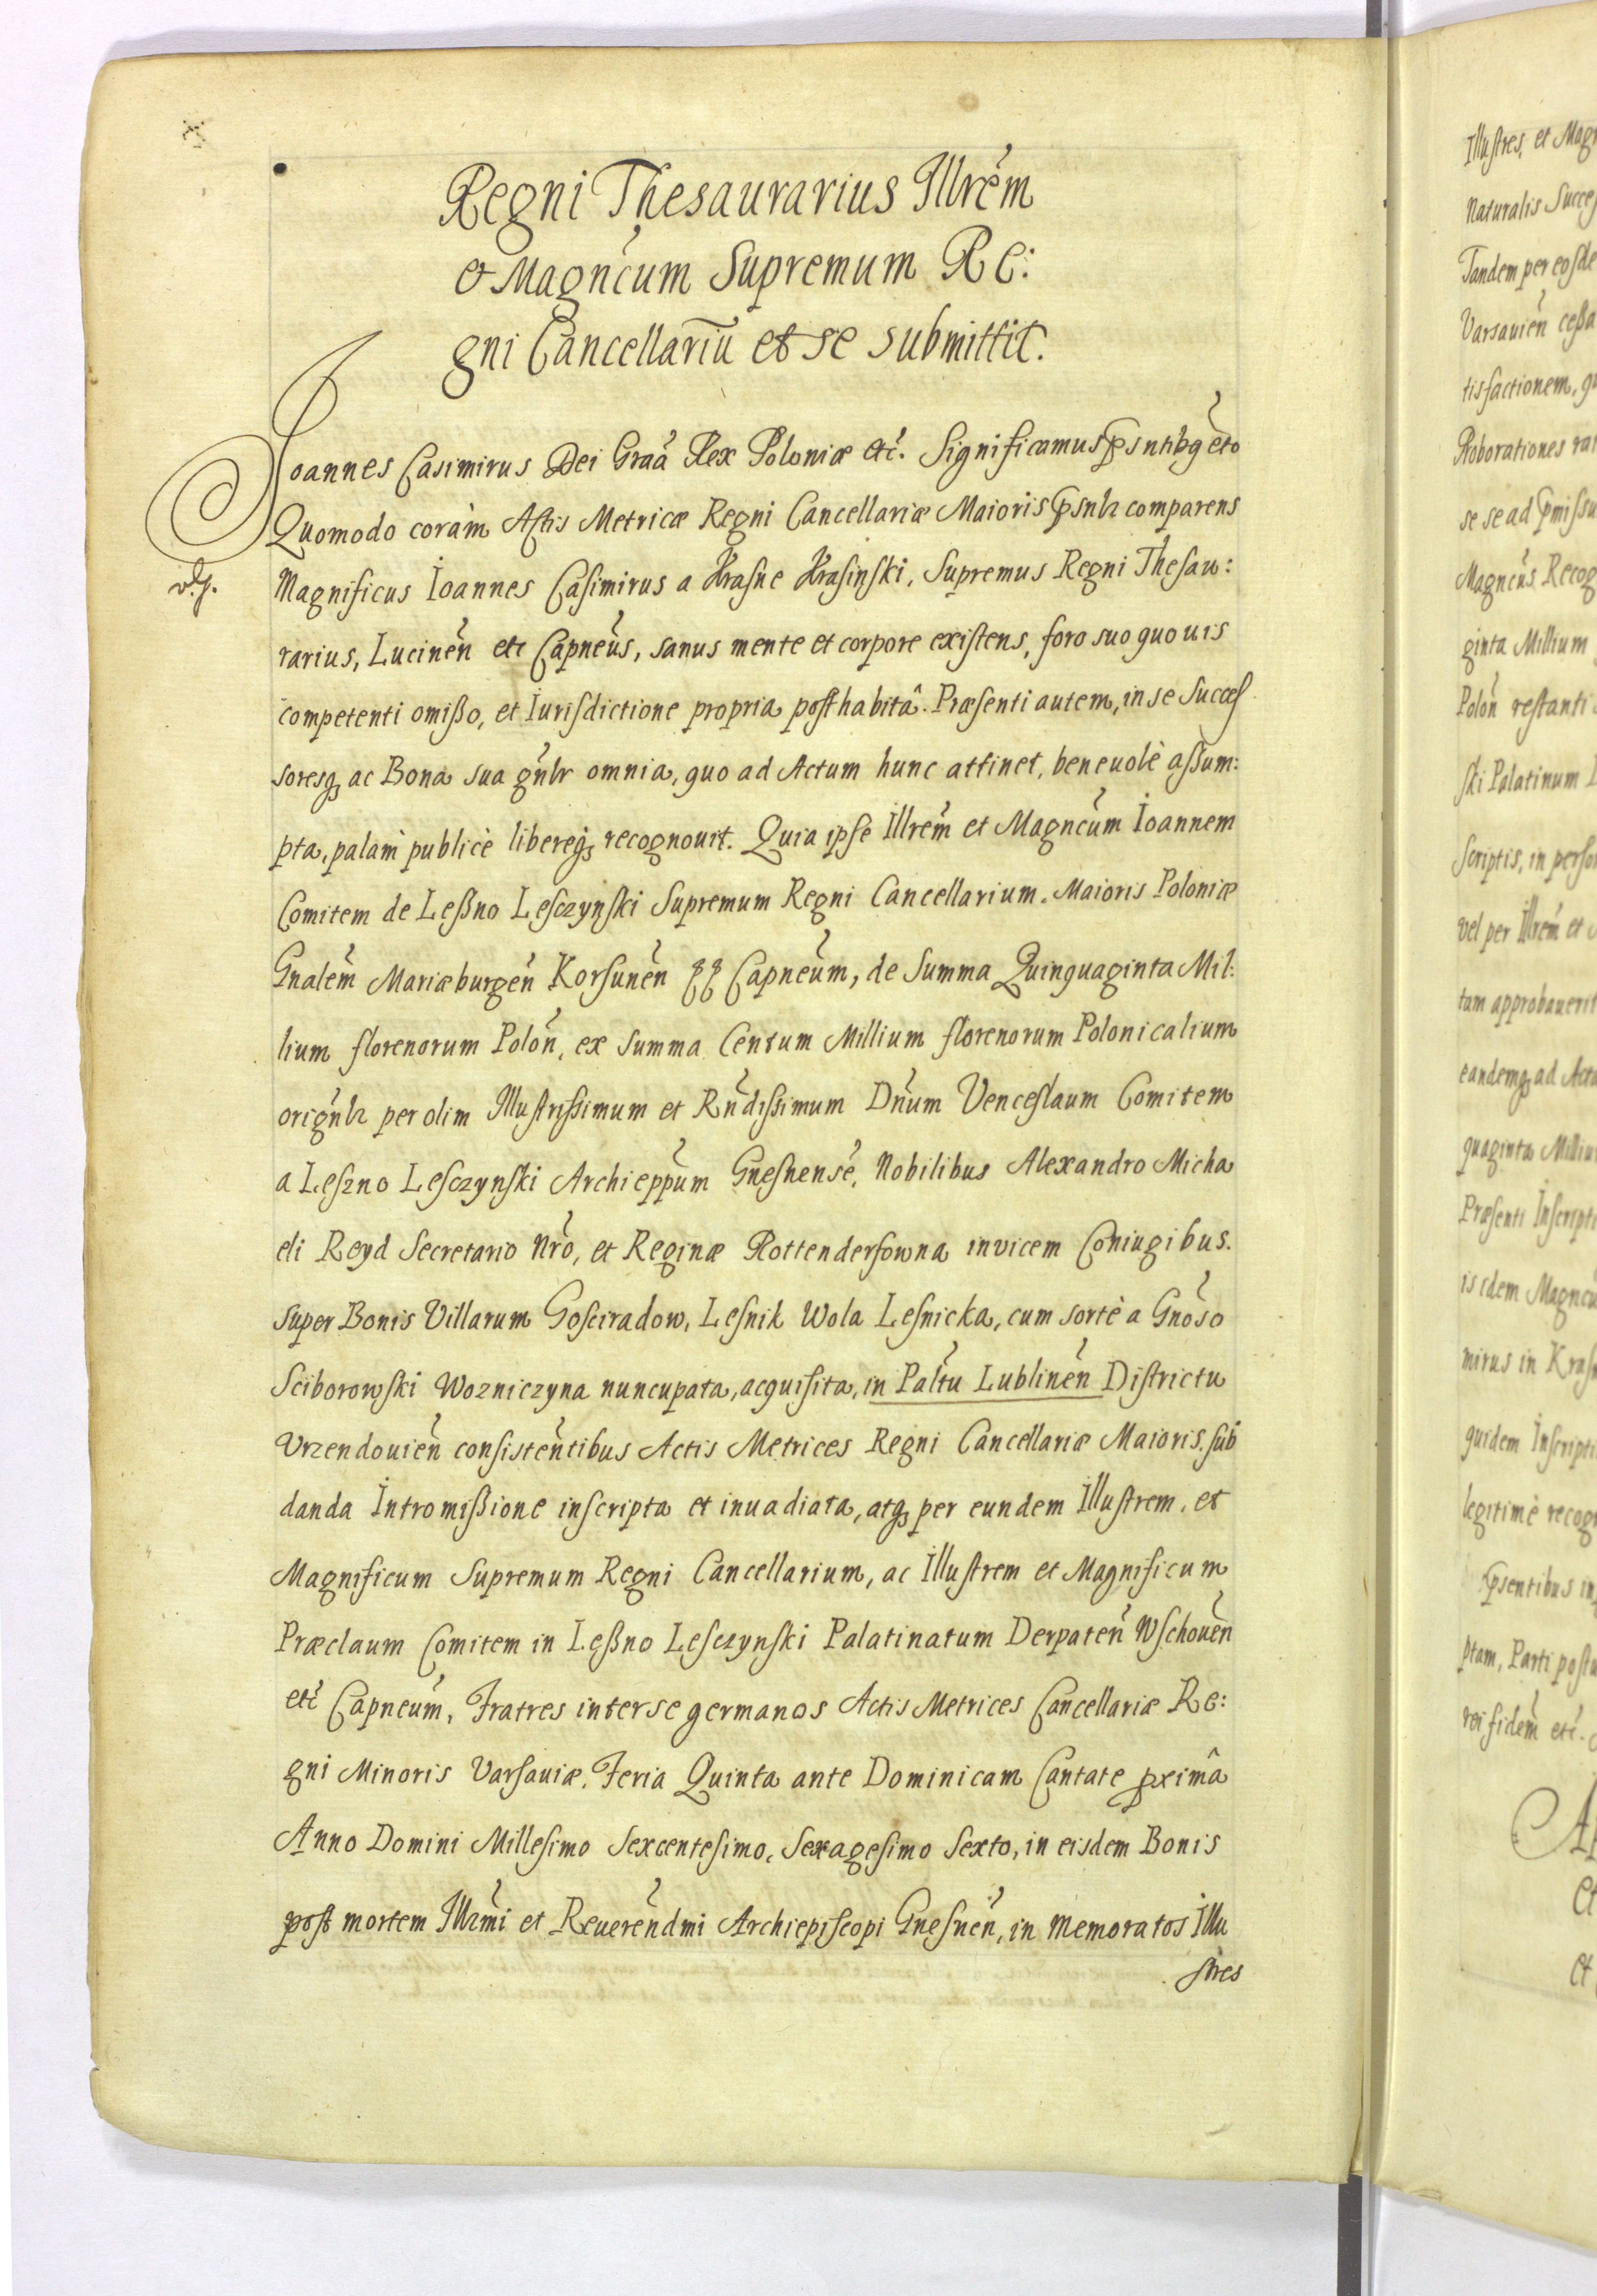 Regni Thesaurarius Illrem
et Magncum Supremum Re:
gni Cancellariũ et se submittit.
Joannes Casimirus Dei Graã Rex Poloniæ etc. Significamus psntibg etc
Quomodo coràm Actis Metricæ Regni Cancellariæ Maioris psnlr comparens
v.g.
Magnificus Ioannes Casimirus a Krasne Krasinski, Supremus Regni Thesau:
rarius, Lucinen etc Capneus, sanus mente et corpore existens, foro suo quouis
competenti omißo, et Iurisdictione propria posthabitâ. Præsenti autem, in se Succes
soresq, ac Bona sua gnlr omnia, quo ad Actum hunc attinet, beneuolè assum:
pta, palàm publicè libereq, recognouit. Quia ipse Illrem et Magncum Ioannem
Comitem de Leßno Lesczynski Supremum Regni Cancellarium. Maioris Poloniæ
Gnalem Mariæburgen Korsunen qq Capneum, de Summa Quinquaginta Mil:
lium florenorum Polon, ex Summa Centum Millium florenorum Polonicalium
orignlr per olim Illustrissimum et Rndissimum Dnum Venceslaum Comitem
a Leszno Lesczynski Archieppum Gnesnense, Nobilibus Alexandro Micha
eli Reyd Secretario Nro, et Reginæ Rottendersowna invicem Coniugibus.
super Bonis Villarum Gosciradow, Lesnik Wola Lesnicka, cum sorte a Gnoso
Sciborowski Wozniczyna nuncupata, acquisita, in Paltu Lublinen Districtu
Vrzendouien consistentibus Actis Metrices Regni Cancellariæ Maioris. sub
danda Intromißione inscripta et inuadiata, atq, per eundem Illustrem, et
Magnificum Supremum Regni Cancellarium, ac Illustrem et Magnificum
Præclaum Comitem in Leßno Lesczynski Palatinatum Derpaten Wschouen
etc Capneum, Fratres inter se germanos Actis Metrices Cancellariæ Re:
gni Minoris Varsauiæ. Feria Quinta ante Dominicam Cantate pximâ
Anno Domini Millesimo Sexcentesimo, Sexagesimo Sexto, in eisdem Bonis
post mortem Illrmi et Reuerendmi Archiepiscopi Gnesnen, in memoratos Illu
stres
Illustres, et Mag
Naturalis Succes
Tandem per eosde
Varsauien ceßa
tisfactionem, qu
Roborationes rat
se se ad pmissu
Magncus Recog
ginta Millium
Polon restanti
ski Palatinum
Scriptis, in perso
vel per Illrem et
tam approbauerit
eandemq, ad Actu
quaginta Milliu
Præsenti Inscripti
isidem Magncu
mirus in Krasn
quidem Inscripti
legitimè recog
psentibus in
ptam, Parti postu
rei fidem etc.